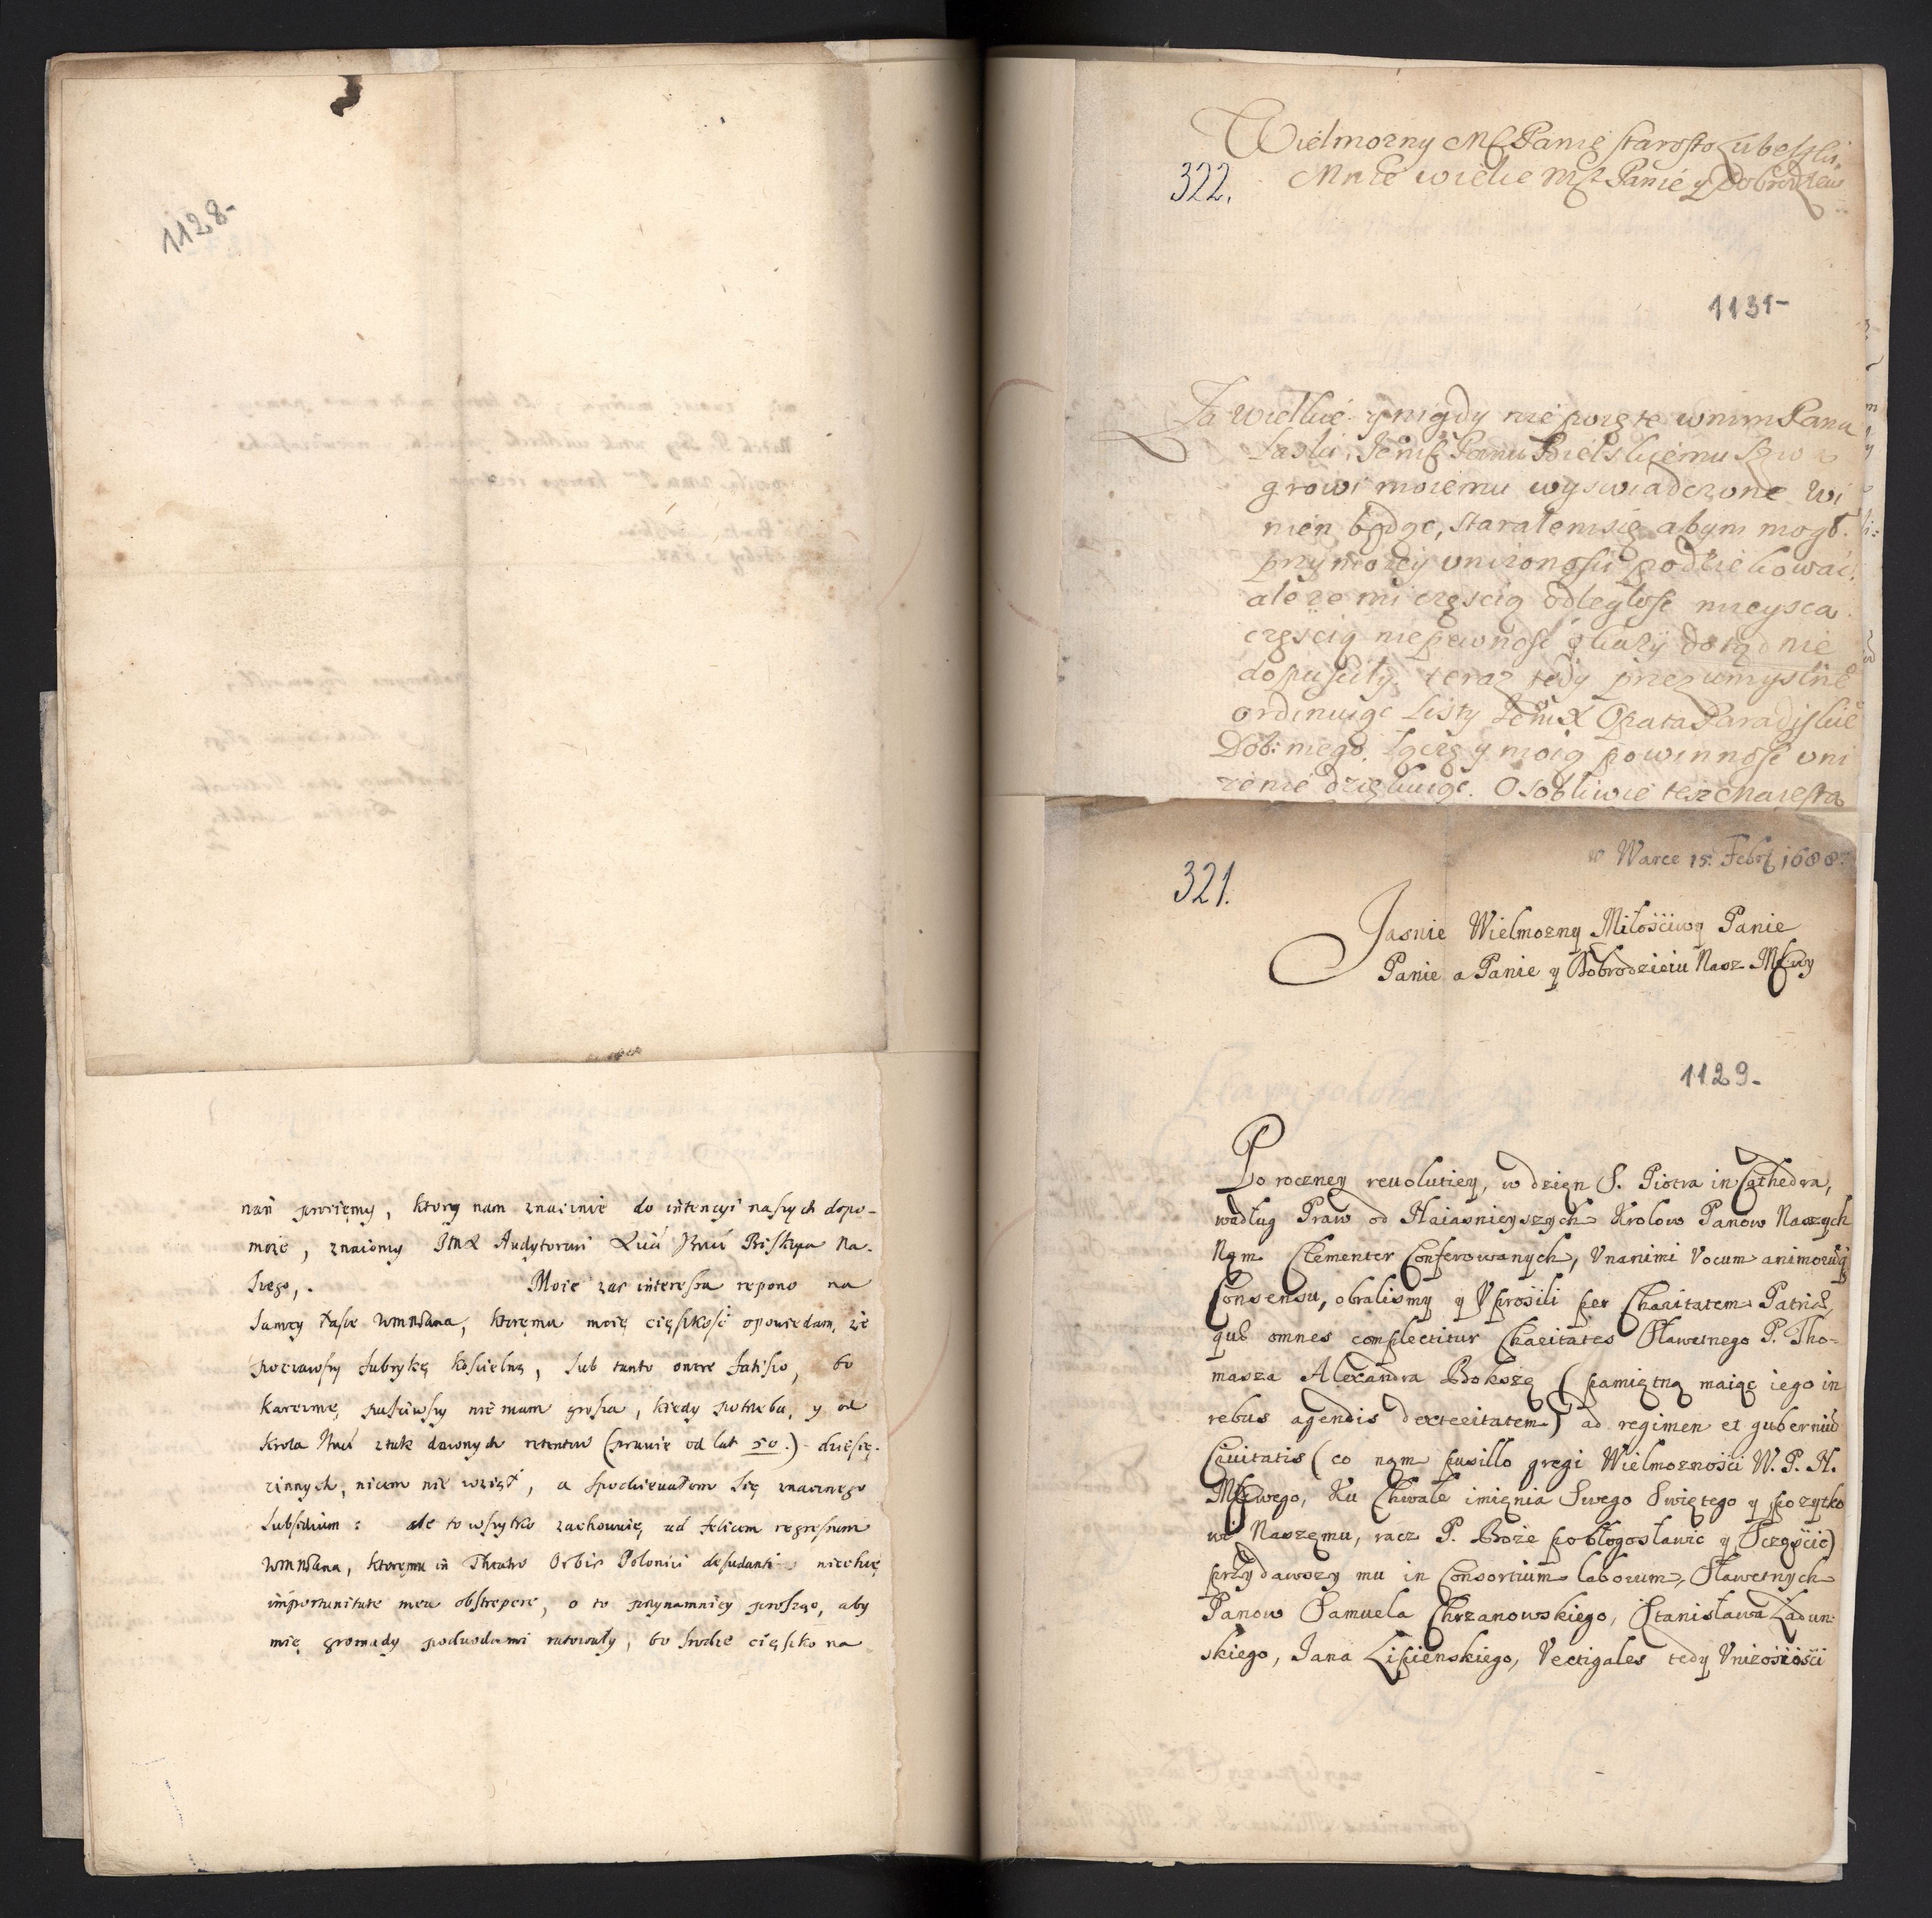 1128-
nań prosiemy, ktory nam znacznie do intencyi naszych dopo-
może, znaiomy Audytorem Biskupa Na-
szego,. Moie zas interessa repono na
samey łasce WMMPana, ktoremu moię cięszkość opowiedam, że
poczawszy fabrykę kościelną, sub tanto onere fatisco, bo
Karczmę pusciwszy nie mam grosza, kiedy potrzeba, y od
Krola z tak dawnych retentow (prawie od lat 50.) dziesię-
cinnych, niczem nie wziął, a spodziewałem się znacznego
Subsidium: ale to wszytko zachowuię ad felicem regressum
WMMPana, ktoremu in Theatro Orbis Polonici desudanti niechcę
importunitate mea obstrepere, o to przynamniey prosząc, aby
mię gromady podwodami ratowały, bo srodze cięszko na
322.
Wielmozny Mś Panie Starosto
Mnie wielce Mś Panie y Dobrodzieiu
1131-
Za wielkie y nigdy nie poięte w nim Pana
Łaski, Panu Bielskiemu Szwa
growi moiemu wyswiadczone wi
nien będąc, starałem się abym mogł
przy moiey unizonosci podziekować,
ale ze mi częscią odległosc mieysca
częscią niepewnosc okazÿ dotąd nie
dopusciły, teraz tedy przez umyslne
ordinuiąc Listy Opata Paradiskie
Dob: mego, łączę y moię powinnosc uni
zenie dziękuiąc. Osobliwie tesz
w Warce 15. Febr. 1688.
321.
Jasnie Wielmozny Miłościwy Panie
Panie a Panie y Dobrodzieiu Nasz Mściwy
1129-
Po roczney reuolutiey, w dzięn S. Piotra in Cathedra,
według Praw od Naiasnieyszych Krolow Panow Naszych
Nąm Clementer Conferowanych, Vnanimi Vocum animorūq
Consensu, obralismy y Vprosili per Charitatem Patriæ,
quæ omnes complectitur Charitates Sławetnego P. Tho-
masza Alexandra Bokszę (pamiętną maiąc iego in
rebus agendis dexteritatem) ad regimen et guberniū
Ciuitatis (co nąm pusillo gregi Wielmozności W. P. N.
Mściwego, Ku Chwale imięnia Swego Swiętego y pozytko
wi Naszęmu, racz P. Boże pobłogosławić y Sczęścić)
przydawszy mu in Consortium laborum, Sławetnych
Panow Samuela Chrzanowskiego, Stanisława Ładun-
skiego, Jana Lipienskiego, Vectigales tedy Vnizoności